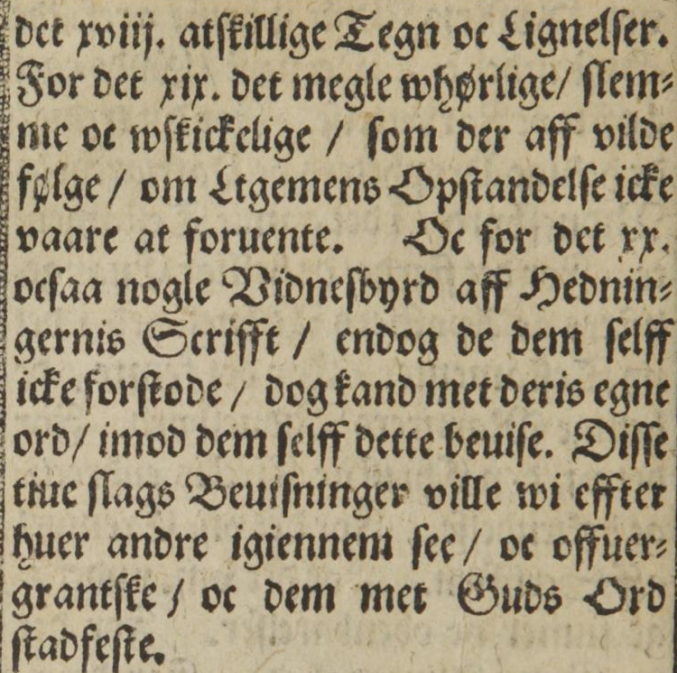 det xviij. atskillige Tegn oc Lignelser.
For det xix. det megle whørlige/ slem⸗
me oc wskickelige / som der aff vilde
følge / om Ligemens Opstandelse icke
vaare at foruente. Oc for det xx.
ocsaa nogle Vidnesbyrd aff Hednin⸗
gernis Scrifft / endog de dem selff
icke forstode / dog kand met deris egne
ord/ imod dem selff dette beuise. Disse
tiue slags Beuisninger ville wi effter
huer andre igiennem see / oc offuer⸗
grantske / oc dem met Guds Ord
stadfeste.